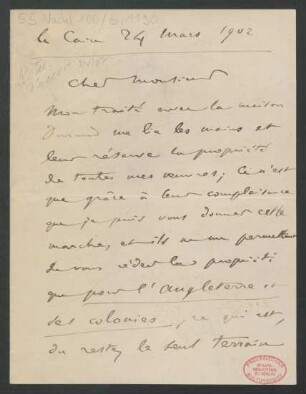 55 Nachl 100/B, 1130
le Caire 24 Mars 1902
Cher Monsieur
Mon traité avec la maison
Durand me lie les mains et
leur réserve la propriété
de toutes mes œuvres; ce n'est
que grâce à leur complaisance
que je puis vous donner cette
marche, et ils ne me permettent
de vous céder la propriété
que pour l'Angleterre et
ses colonies, ce qui est,
du reste, le seul terrain